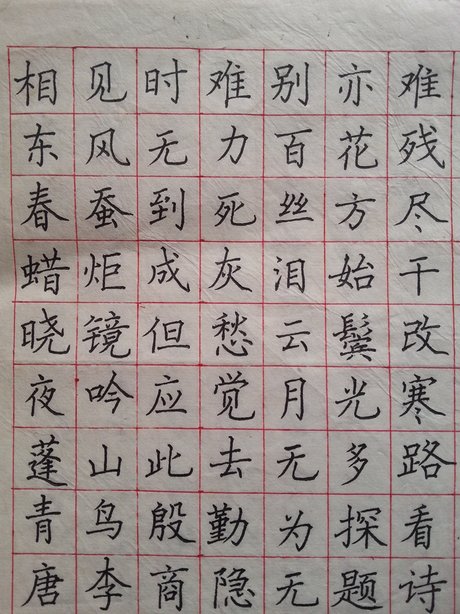 相见时难别亦难
东风无力百花残
春蚕到死丝方尽
蜡炬成灰泪始干
晓镜但愁云鬓改
夜吟应觉月光寒
蓬山此去无多路
青鸟殷勤为探看
唐李商隐无题诗